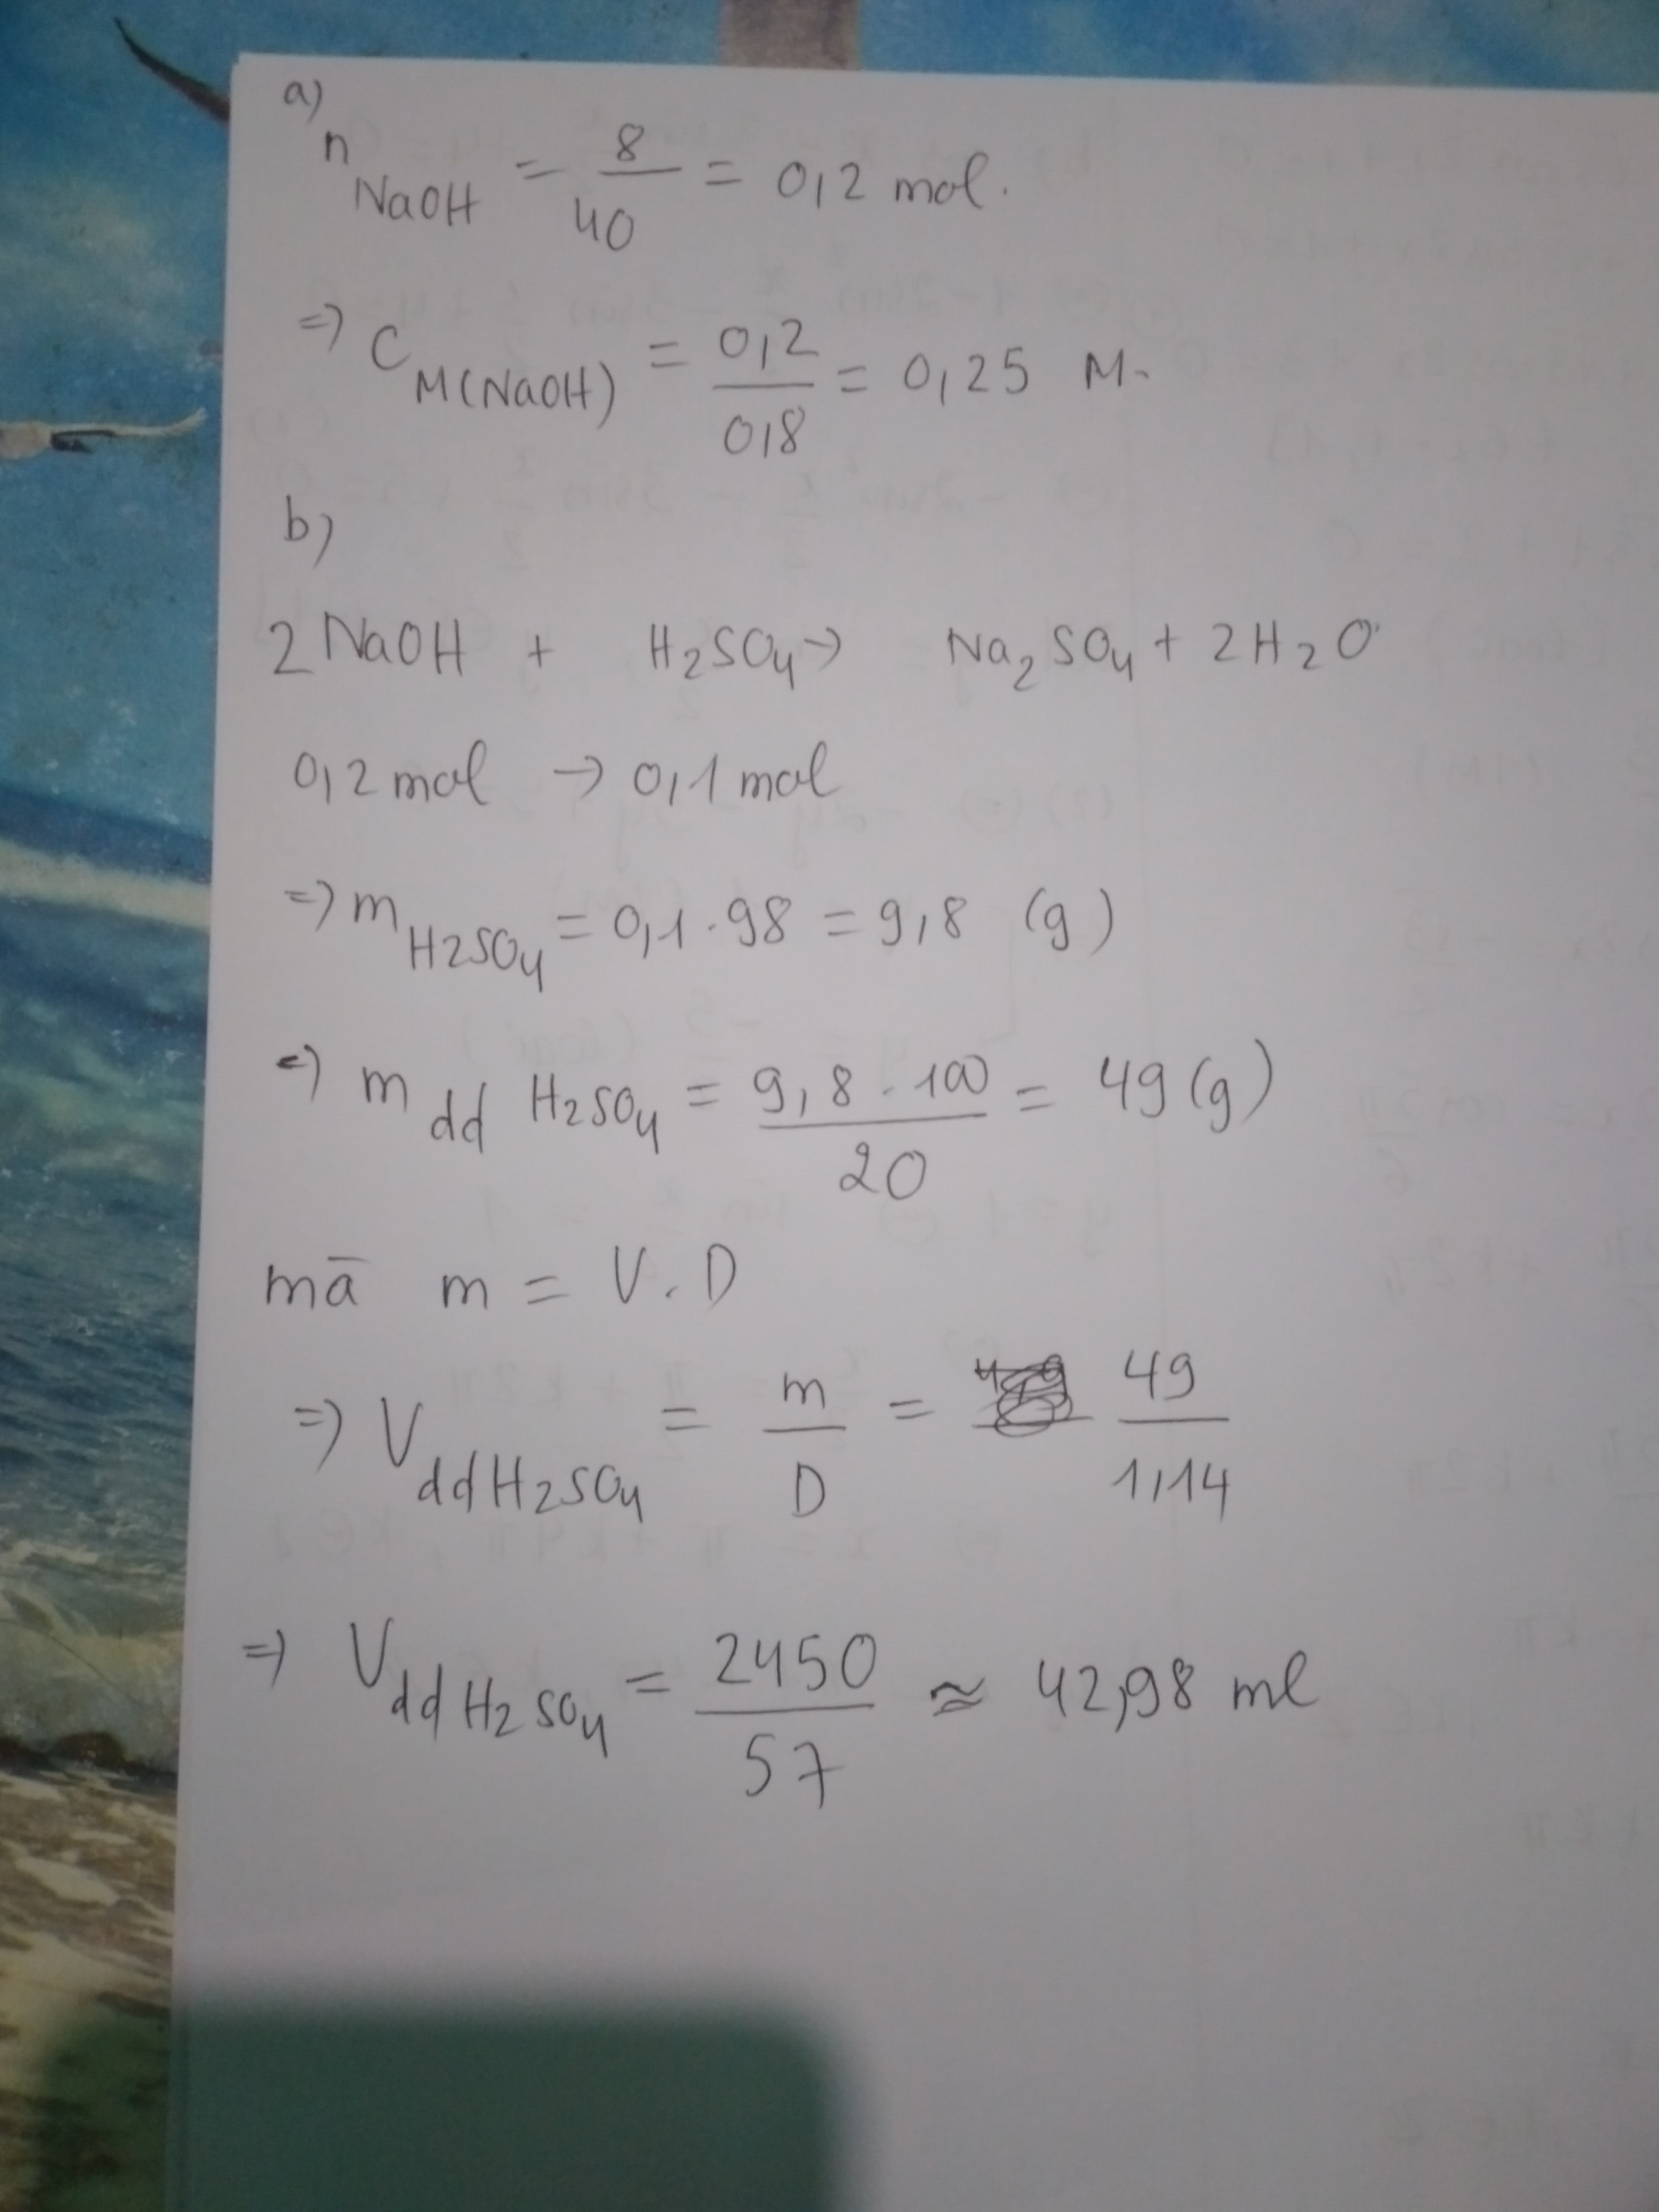 a)
n NaOH = 8/40 = 0,2 mol.
=> C M(NaOH) = 0,2/0,8 = 0,25 M.
b)
2 NaOH + H2SO4 → Na2SO4 + 2H2O
0,2 mol → 0,1 mol
=> m H2SO4 = 0,1 . 98 = 9,8 (g)
=> m dd H2SO4 = 9,8 . 100/20 = 49 (g)
mā m = V . D
=> V dd H2SO4 = m/D = 49/1,14
=> V dd H2SO4 = 2450/57 ≈ 42,98 ml